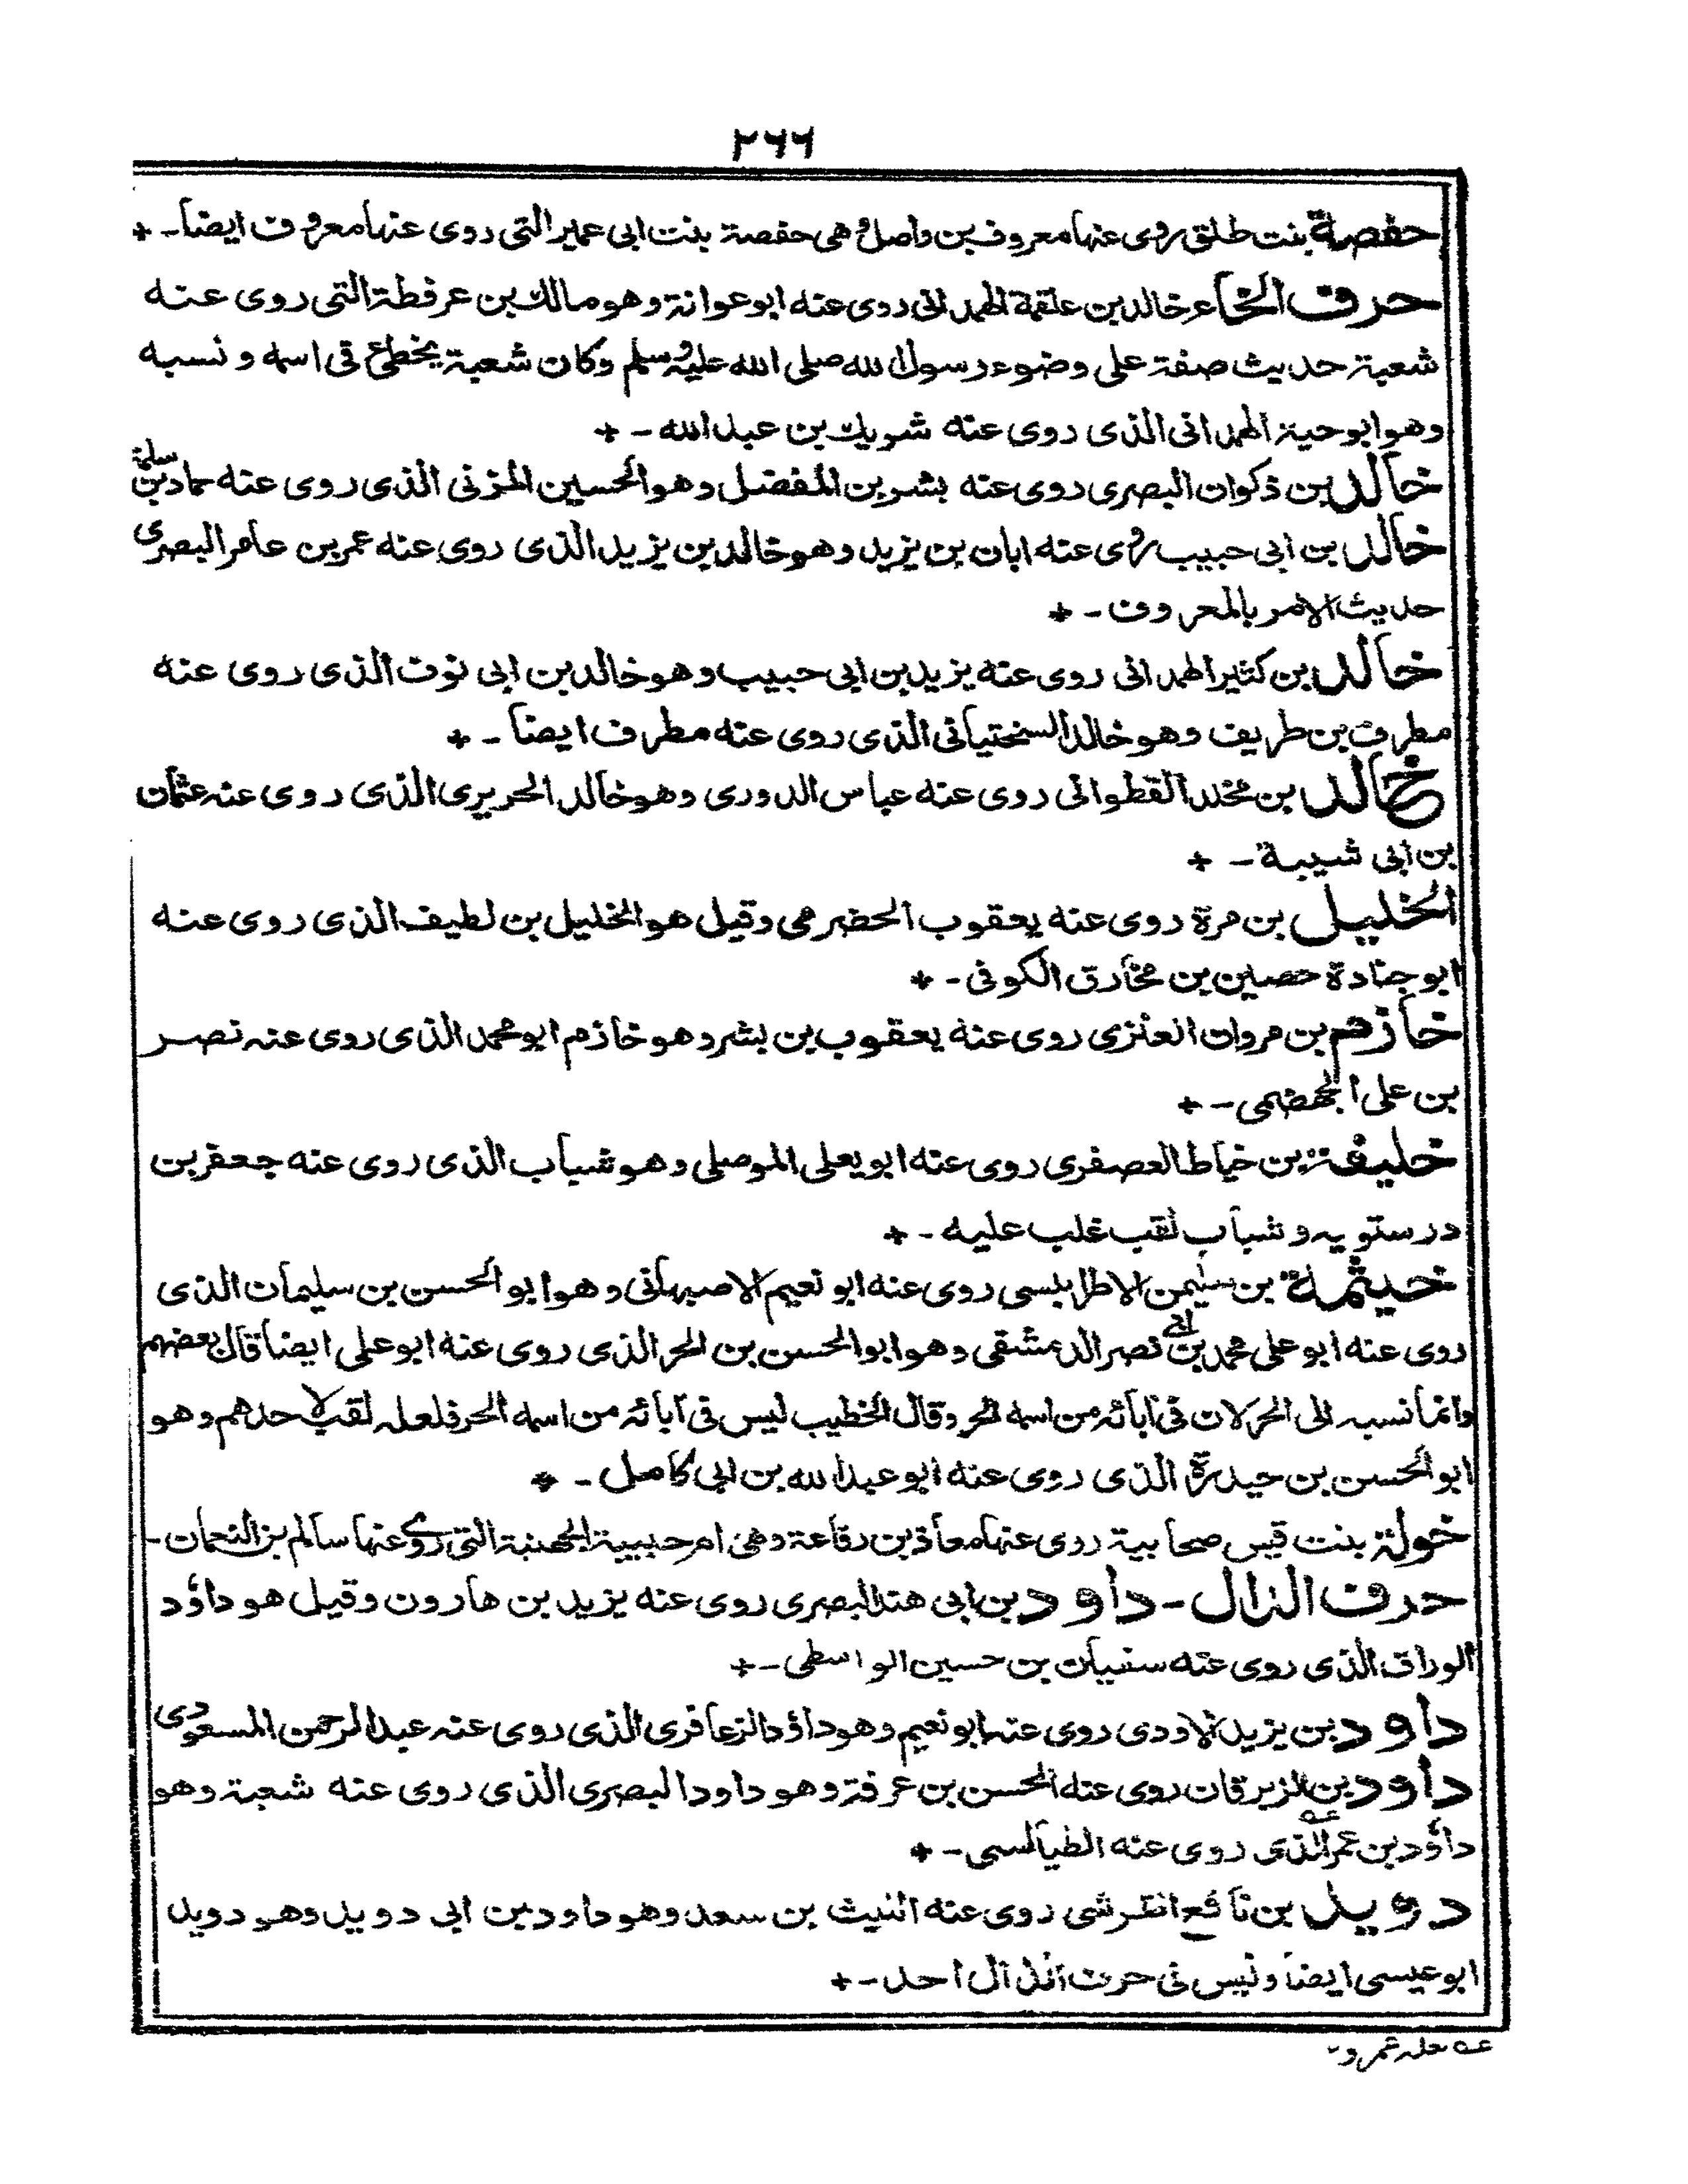 ٢٦٦
حفصة بنت طلق روى عنها معروف بن واصل وهى حفصة بنت ابى عمير التى روى عنها معروف ايضا ـ +
حرف الخاء خالد بن علقمة الهمدانى روى عنه ابو عوانة وهو مالك بن عرفطة التى روى عنه
شعبة حديث صفة على وضوء رسول الله صلى الله عليه وسلم وكان شعبة يخطئ فى اسمه ونسبه
وهو ابو حية الهمدانى الذى روى عنه شريك بن عبد الله ـ +
خالد بن ذكوان البصرى روى عنه بشر بن المفضل وهو الحسين المزنى الذى روى عنه حماد بن سلمة
خالد بن ابى حبيب روى عنه ابان بن يزيد وهو خالد بن يزيد الذى روى عنه عمر بن عامر البصرى
حديث الامر بالمعروف ـ +
خالد بن كثير الهمدانى روى عنه يزيد بن ابى حبيب وهو خالد بن ابى نوف الذى روى عنه
مطرف بن طريف وهو خالد السختيانى الذى روى عنه مطرف ايضا ـ +
خالد بن مخلد القطوانى روى عنه عباس الدورى وهو خالد الحريرى الذى روى عنه عثمان
بن ابى شيبة ـ +
الخليل بن مرة روى عنه يعقوب الحضرمى وقيل هو الخليل بن لطيف الذى روى عنه
ابو جنادة حصين بن مخارق الكوفى ـ +
خازم بن مروان العنزى روى عنه يعقوب بن بشر وهو خازم ابو محمد الذى روى عنه نصر
بن على الجهضمى ـ +
خليفة بن خياط العصفرى روى عنه ابو يعلى الموصلى وهو شباب الذى روى عنه جعفر بن
درستويه وشباب لقب غلب عليه ـ +
خيثمة بن سليمن الاطرابلسى روى عنه ابو نعيم الاصبهانى وهو ابو الحسن بن سليمان الذى
روى عنه ابو على محمد بن ابى نصر الدمشقى وهو ابو الحسن بن الحر الذى روى عنه ابو على ايضا قال بعضهم
وانما نسبه الى الحر لان فى آبائه من اسمه الحر وقال الخطيب ليس فى آبائه من اسمه الحر فلعله لقب لاحدهم وهو
ابو الحسن بن حيدرة الذى روى عنه ابو عبد الله بن ابى كامل ـ +
خولة بنت قيس صحابية روى عنها معاذ بن رفاعة وهى ام حبيبة الجهنية التى روى عنها سالم بن النعمان ـ
حرف الدال ـ داود بن ابى هند البصرى روى عنه يزيد بن هارون وقيل هو داؤد
الوراق الذى روى عنه سفيان بن حسين الواسطى ـ +
داود بن يزيد الاودى روى عنه ابو نعيم وهو داؤد الزعافرى الذى روى عنه عبد الرحمن المسعودى
داود بن الزبرقان روى عنه الحسن بن عرفة وهو داود البصرى الذى روى عنه شعبة وهو
داؤد بن عمر عـه الذى روى عنه الطيالسى ـ +
دويل بن نافع القرشى روى عنه الليث بن سعد وهو داود بن ابى دويل وهو دويل
ابو عيسى ايضا وليس فى حرف الذال احد ـ +
عـه لعله عمرو